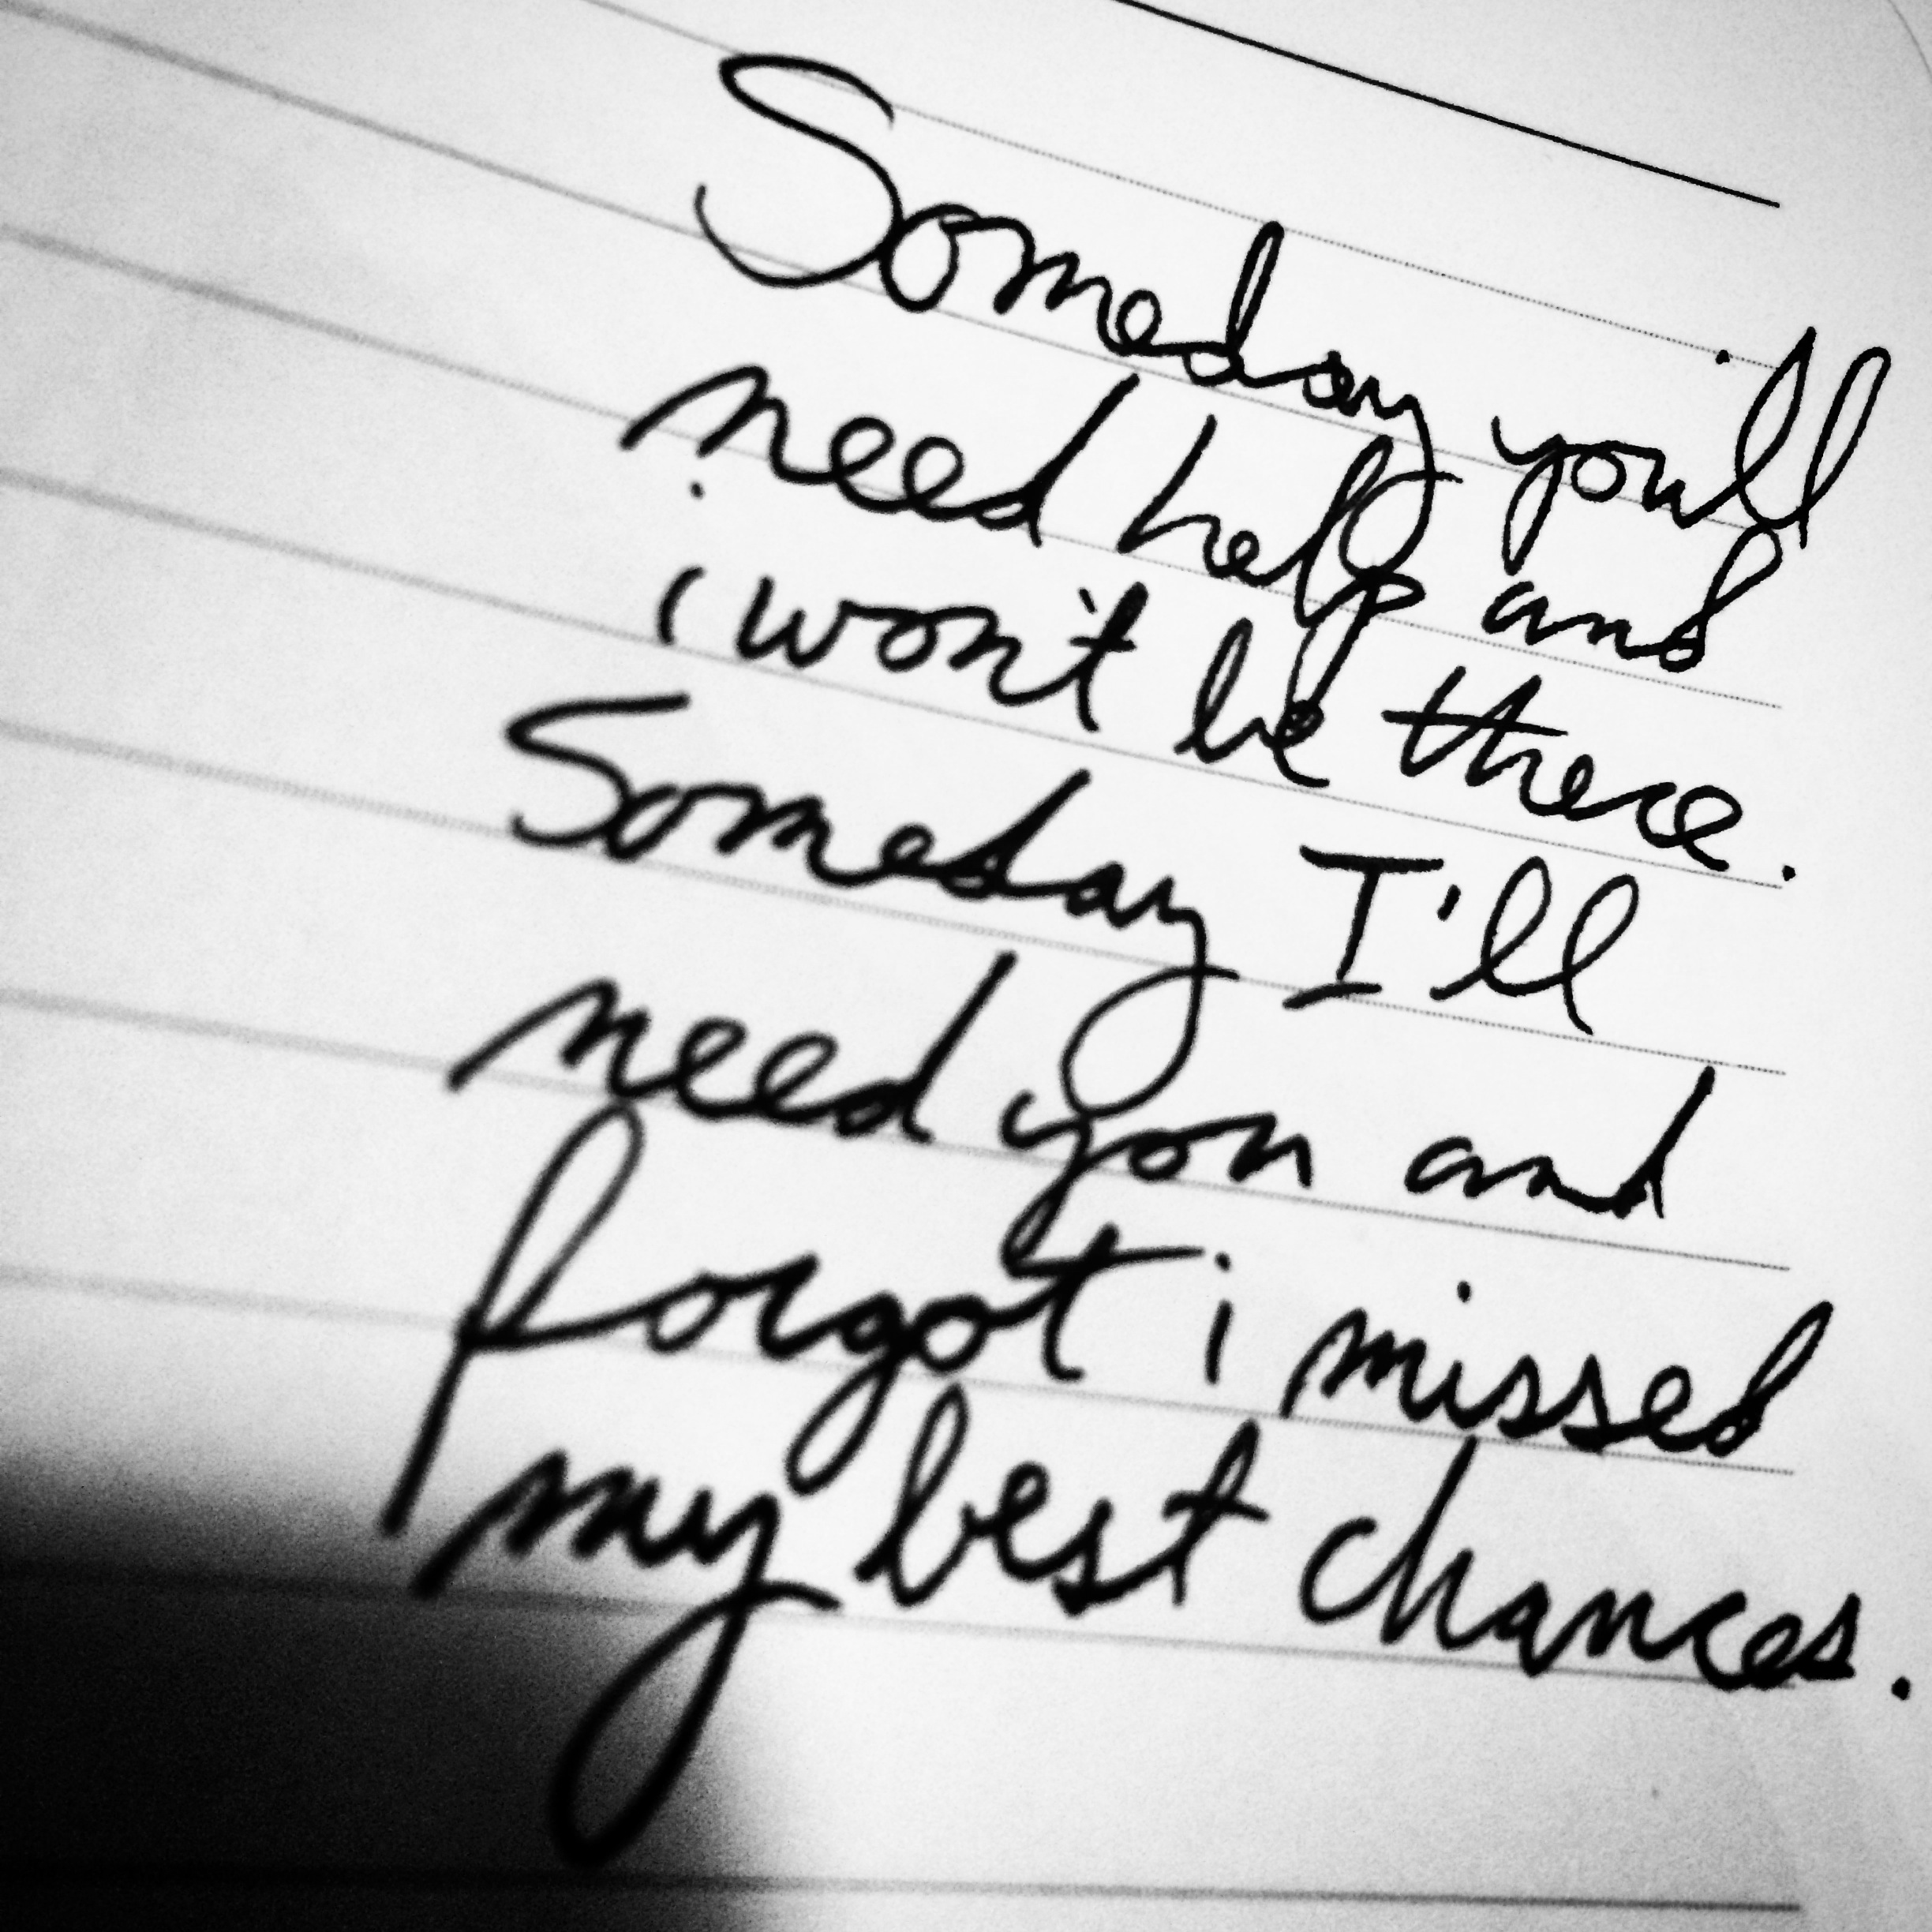 Someday you'll
need help and
i won't be there.
Someday I'll
need you and
forgot i missed
my best chances.